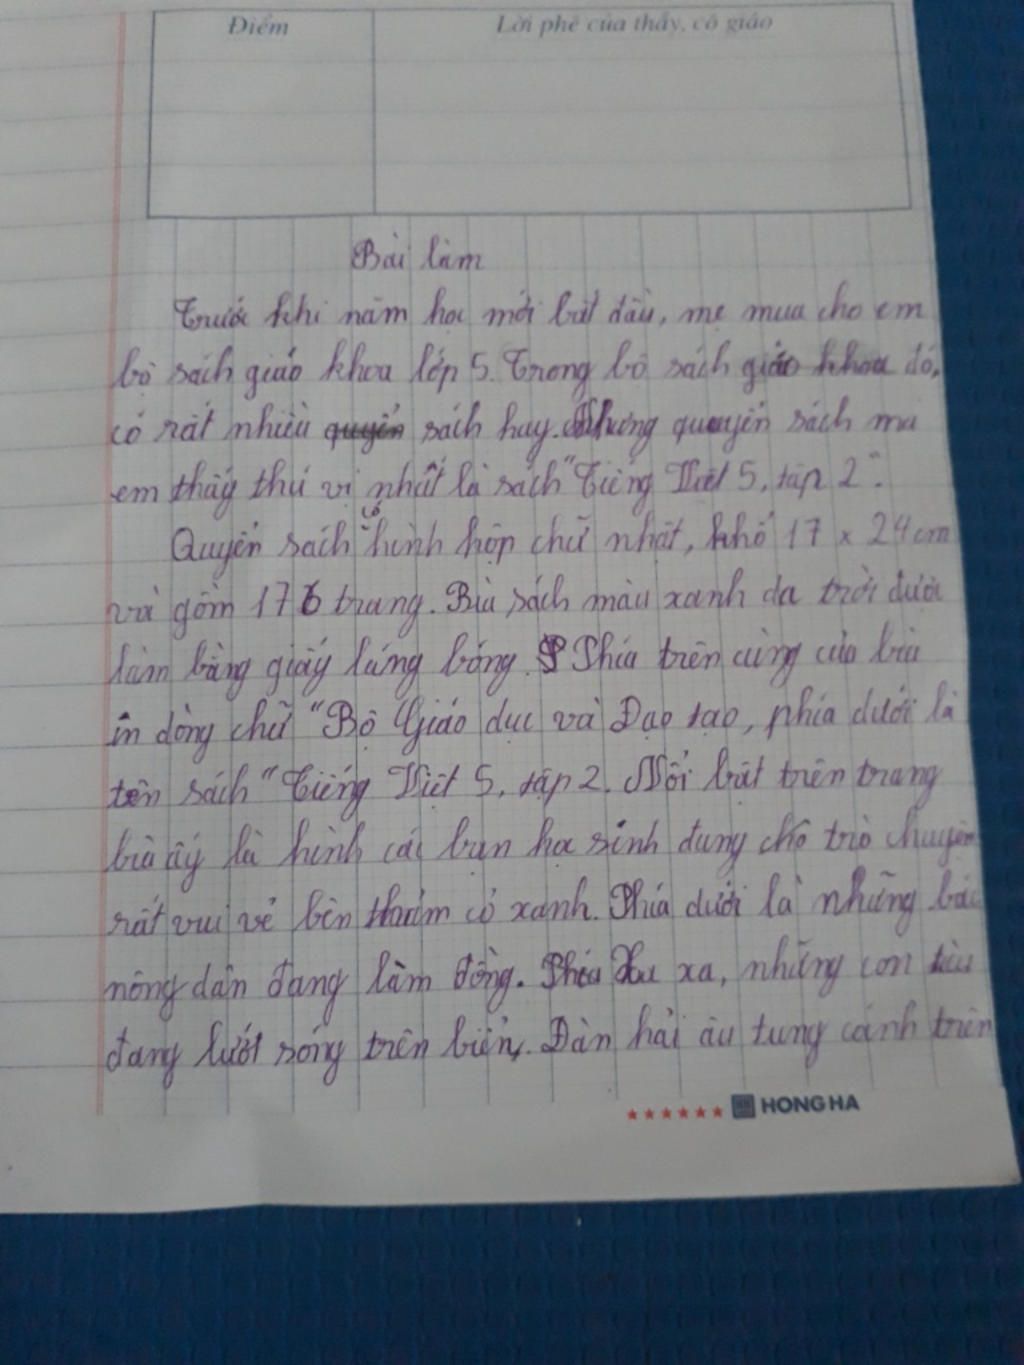 Điểm
Lời phê của thầy, cô giáo
Bài làm
Trước khi năm học mới bắt đầu, mẹ mua cho em
bộ sách giáo khoa lớp 5. Trong bộ sách giáo khoa đó,
có rất nhiều quyển sách hay. Nhưng quyển sách mà
em thấy thú vị nhất là sách "Tiếng Việt 5, tập 2".
Quyển sách có hình hộp chữ nhật, khổ 17 x 24 cm
và gồm 176 trang. Bìa sách màu xanh da trời được
làm bằng giấy láng bóng. Phía trên cùng của bìa
in dòng chữ "Bộ Giáo dục và Đạo tạo, phía dưới là
tên sách "Tiếng Việt 5, tập 2. Nổi bật trên trang
bìa ấy là hình cái bạn học sinh đang chỗ trò chuyện
rất vui vẻ bên thảm cỏ xanh. Phía dưới là những bác
nông dân đang làm đồng. Phía xa, những con tàu
đang lướt sóng trên biển. Đàn hải âu tung cánh trên
HONG HA